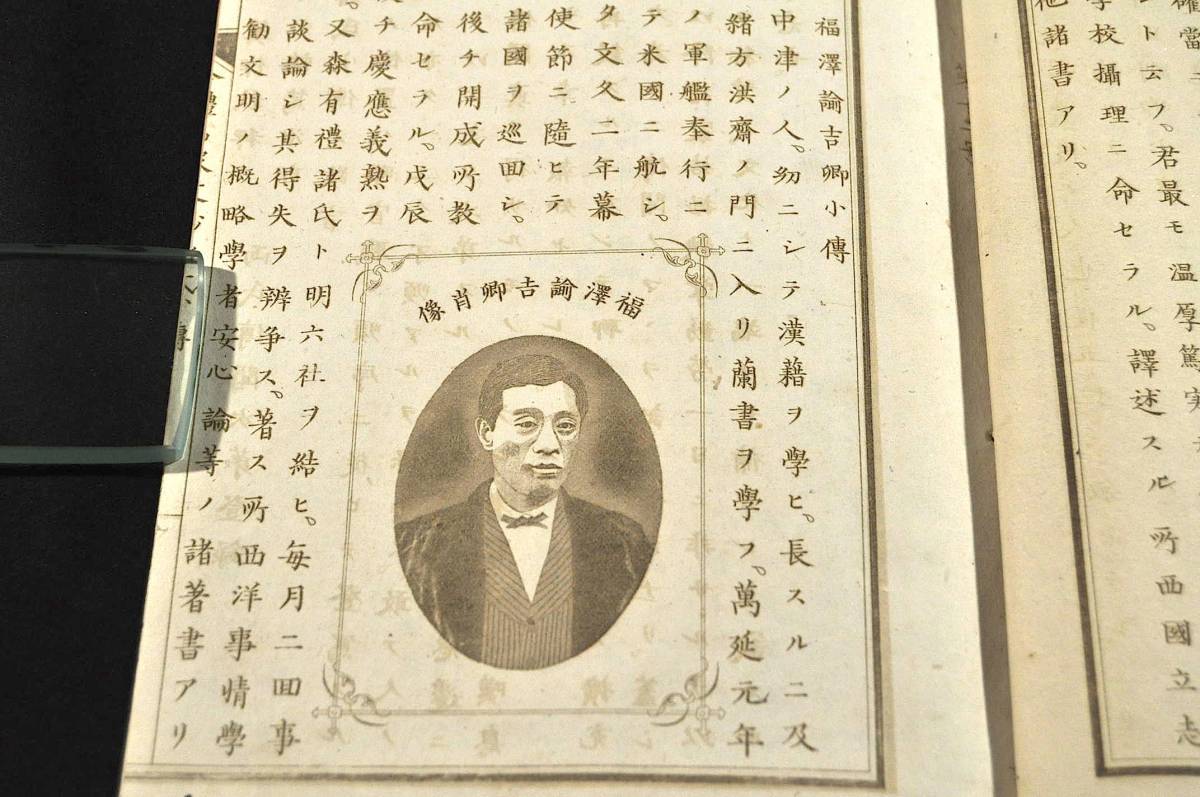 ト云フ。君最モ温厚篤実
學校攝理ニ命セラル。譯述スル所西國立志
他諸書アリ。
福澤諭吉卿小傳
中津ノ人。幼ニシテ漢藉ヲ學ヒ。長スルニ及
緒方洪齋ノ門ニ入リ蘭書ヲ學フ。萬延元年
ノ軍艦奉行ニ
テ米國ニ航シ。
タ文久二年幕
使節ニ隨ヒテ
諸國ヲ巡回シ。
後チ開成所教
命セラル。戊辰
チ慶應義熟ヲ
福澤諭吉卿肖像
又森有禮諸氏ト明六社ヲ結ヒ。毎月二回事
談論シ其得失ヲ辨争ス。著ス所西洋事情學
勸文明ノ概略學者安心論等ノ諸著書アリ